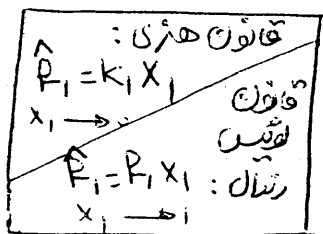 قانون هنری :
P̂₁ = K₁ X₁
X₁ → ۰
قانون
لوئیس
رندال :
f̂₁ = P₁ X₁
X₁ → ۱